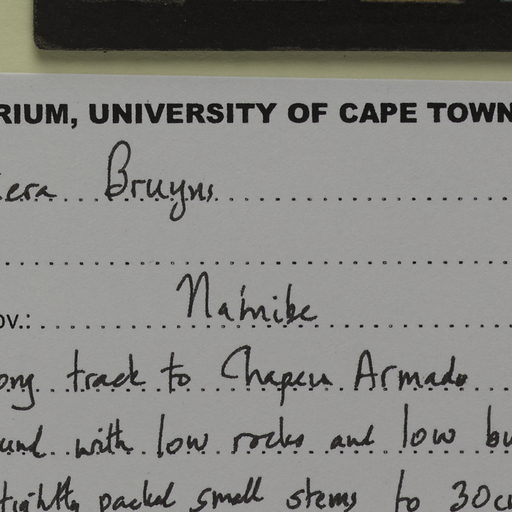 RIUM, UNIVERSITY OF CAPE TOWN
era Bruyns
ov.: Namibe
ong track to Chapeu Armado
und with low rocks and low bu
tightly packed small stems to 30c